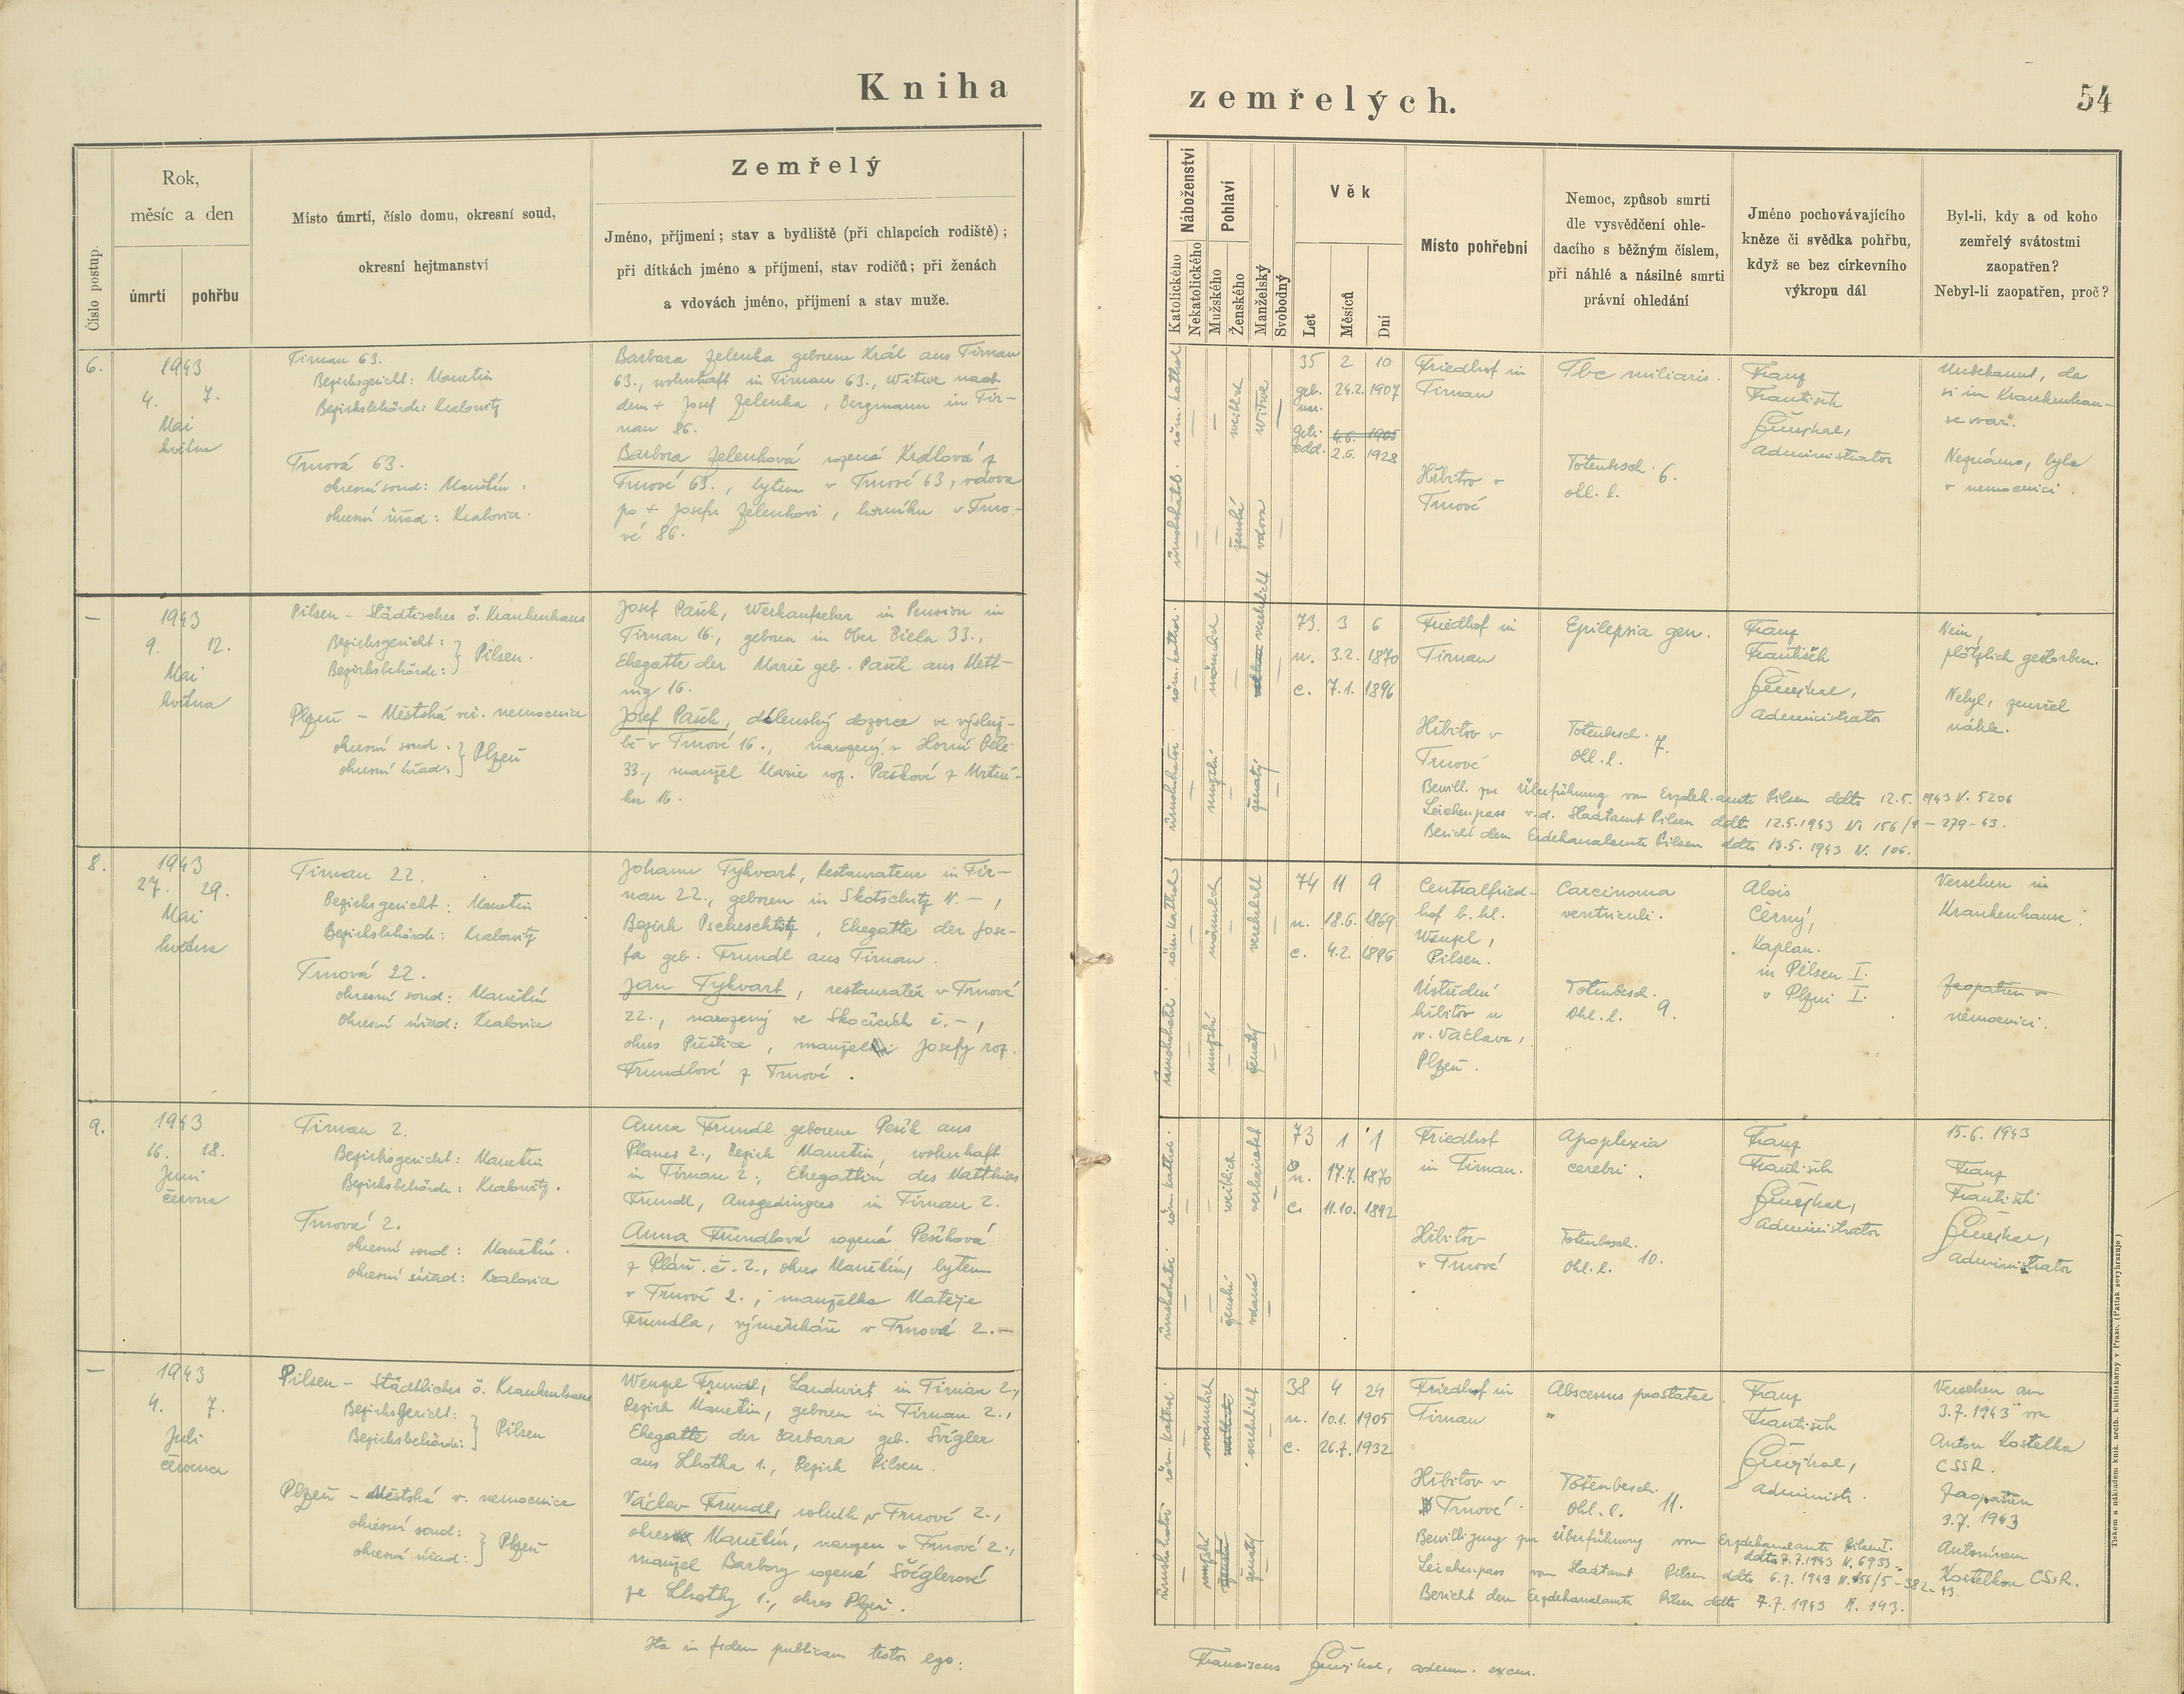 Kniha
zemřelých.
54
Číslo postup.
Rok,
měsíc a den
úmrtí
pohřbu
Místo úmrtí, číslo domu, okresní soud,
okresní hejtmanství
Zemřelý
Jméno, příjmení; stav a bydliště (při chlapcích rodiště);
při dítkách jméno a příjmení, stav rodičů; při ženách
a vdovách jméno, příjmení a stav muže.
Náboženství
Katolického
Nekatolického
Pohlaví
Mužského
Ženského
Manželský
Svobodný
Věk
Let
Měsíců
Dní
Místo pohřební
Nemoc, způsob smrti
dle vysvědčení ohle-
dacího s běžným číslem,
při náhlé a násilné smrti
právní ohledání
Jméno pochovávajícího
kněze či svědka pohřbu,
když se bez církevního
výkropu dál
Byl-li, kdy a od koho
zemřelý svátostmi
zaopatřen?
Nebyl-li zaopatřen, proč?
6.
1943
4. 7.
Mai
května
Tirnau 63.
Bezirksgericht: Manetin
Bezirksbehörde: Kralowitz
Trnová 63.
okresní soud: Manětín.
okresní úřad: Kralovice.
Barbara Zelenka geborene Král aus Tirnau
63., wohnhaft in Tirnau 63., Witwe nach
dem + Josef Zelenka, Bergmann in Tir-
nau 86.
Barbora Zelenková rozená Králová z
Trnové 63., bytem v Trnové 63, vdova
po + Josefu Zelenkovi, horníku v Trno-
vé 86.
röm. kathol.
římskokatol.
weiblich
ženské
Witwe
vdova
35 2 10
geb. 24.2. 1907
nar.
getr. 4.6. 1905
odd. 2.6. 1928
Friedhof in
Tirnau
Hřbitov v
Trnové
Tbc miliaris.
Totenbesch. 6.
ohl. l.
Franz
František
Administrator
Unbekannt, da
sie im Krankenhau-
se war.
Neznámo, byla
v nemocnici.
—
1943
9. 12.
Mai
května
Pilsen - Städtisches ö. Krankenhaus
Bezirksgericht: } Pilsen.
Bezirksbehörde:
Plzeň - Městská veř. nemocnice
okresní soud: } Plzeň
okresní úřad:
Josef Pašek, Werkaufseher in Pension in
Tirnau 16., geboren in Ober Biela 33.,
Ehegatte der Marie geb. Pašek aus Mert-
nig 16.
Josef Pašek, dílenský dozorce ve výsluž-
bě v Trnové 16., narozený v Horní Bělé
33., manžel Marie roz. Paškové z Mrtní-
ku 16.
röm. kathol.
římskokatol.
männlich
mužské
verehelicht
ženatý
73. 3 6
n. 3.2. 1870
c. 7.1. 1896
Friedhof in
Tirnau
Hřbitov v
Trnové
Epilepsia gen.
Totenbesch. 7.
Ohl. l.
Franz
František
Administrator
Nein,
plötzlich gestorben.
Nebyl, zemřel
náhle.
Bewill. zur Überführung vom Erzdech.amte Pilsen ddto 12.5. 1943 N. 5206
Leichenpass v.d. Stadtamt Pilsen ddto 12.5.1943 N. 156/9 - 279-43.
Bericht dem Erzdechanalamte Pilsen ddto 13.5. 1943 N. 106.
8.
1943
27. 29.
Mai
května
Tirnau 22.
Bezirksgericht: Manetin
Bezirksbehörde: Kralowitz
Trnová 22.
okresní soud: Manětín
okresní úřad: Kralovice
Johann Tykvart, Restaurateur in Tir-
nau 22., geboren in Skotschitz N. -,
Bezirk Pscheschtitz, Ehegatte der Jose-
fa geb. Frundl aus Tirnau.
Jan Tykvart, restauratér v Trnové
22., narozený ve Skočicích č. -,
okres Přeštice, manžel Josefy roz.
Frundlové z Trnové.
röm. kathol.
římskokatol.
männlich
mužské
verehelicht
ženatý
74 11 9
n. 18.6. 1869
c. 4.2. 1896
Centralfried-
hof b. hl.
Wenzel,
Pilsen.
Ústřední
hřbitov u
sv. Václava,
Plzeň.
Carcinoma
ventriculi.
Totenbesch.
Ohl. l. 9.
Alois
Černý,
Kaplan.
in Pilsen I.
v Plzni I.
Versehen im
Krankenhause.
Zaopatřen v
nemocnici.
9.
1943
16. 18.
Juni
června
Tirnau 2.
Bezirksgericht: Manetin
Bezirksbehörde: Kralowitz.
Trnová 2.
okresní soud: Manětín.
okresní úřad: Kralovice
Anna Frundl geborene Pešík aus
Planes 2., Bezirk Manetin, wohnhaft
in Tirnau 2., Ehegattin des Matthias
Frundl, Ausgedinges in Tirnau 2.
Anna Frundlová rozená Pešíková
z Pláně č. 2., okres Manětín, bytem
v Trnové 2., manželka Matěje
Frundla, výměnkáře v Trnové 2.-
röm. kathol.
římskokatol.
weiblich
ženské
verheiratet
vdaná
73 1 1
n. 17.7. 1870
c. 11.10. 1892
Friedhof
in Tirnau.
Hřbitov
v Trnové
Apoplexia
cerebri.
Totenbesch.
Ohl. l. 10.
Franz
František
Administrator
15.6. 1943
Franz
František
Administrator
—
1943
4. 7.
Juli
července
Pilsen - Städtliches ö. Krankenhaus
Bezirksgericht: } Pilsen
Bezirksbehörde:
Plzeň - Městská v. nemocnice
okresní soud: } Plzeň
okresní úřad:
Wenzel Frundl, Landwirt in Tirnau 2.,
Bezirk Manetin, geboren in Tirnau 2.,
Ehegatte der Barbara geb. Švigler
aus Lhotka 1., Bezirk Pilsen.
Václav Frundl, rolník v Trnové 2.,
okres Manětín, narozen v Trnové 2.,
manžel Barbory rozené Šviglerové
ze Lhotky 1., okres Plzeň.
röm. kathol.
římskokatol.
männlich
mužské
verehelicht
ženatý
38 4 24
n. 10.1. 1905
c. 26.7. 1932
Friedhof in
Tirnau
Hřbitov v
Trnové.
Abscesus prostatae.
Totenbesch.
Ohl. l. 11.
Franz
František
Administr.
Versehen am
3.7. 1943 von
Anton Kostelka
CSsR.
Zaopatřen
3.7. 1943
Antonínem
Kostelkou CSsR.
Bewilligung zur Überführung vom Erzdechanalamte Pilsen I.
ddto 7.7.1943 N. 6933.-
Leichenpass vom Stadtamt Pilsen ddto 6.7. 1943 N. 156/5 - 382-43.
Bericht dem Erzdechanalamte Pilsen ddto 7.7. 1943 N. 143.
Ita in fidem publicam testor ego:
Franciscus
Tiskem a nákladem kníž. arcib. knihtiskárny v Praze. (Patisk se vyhrazuje.)